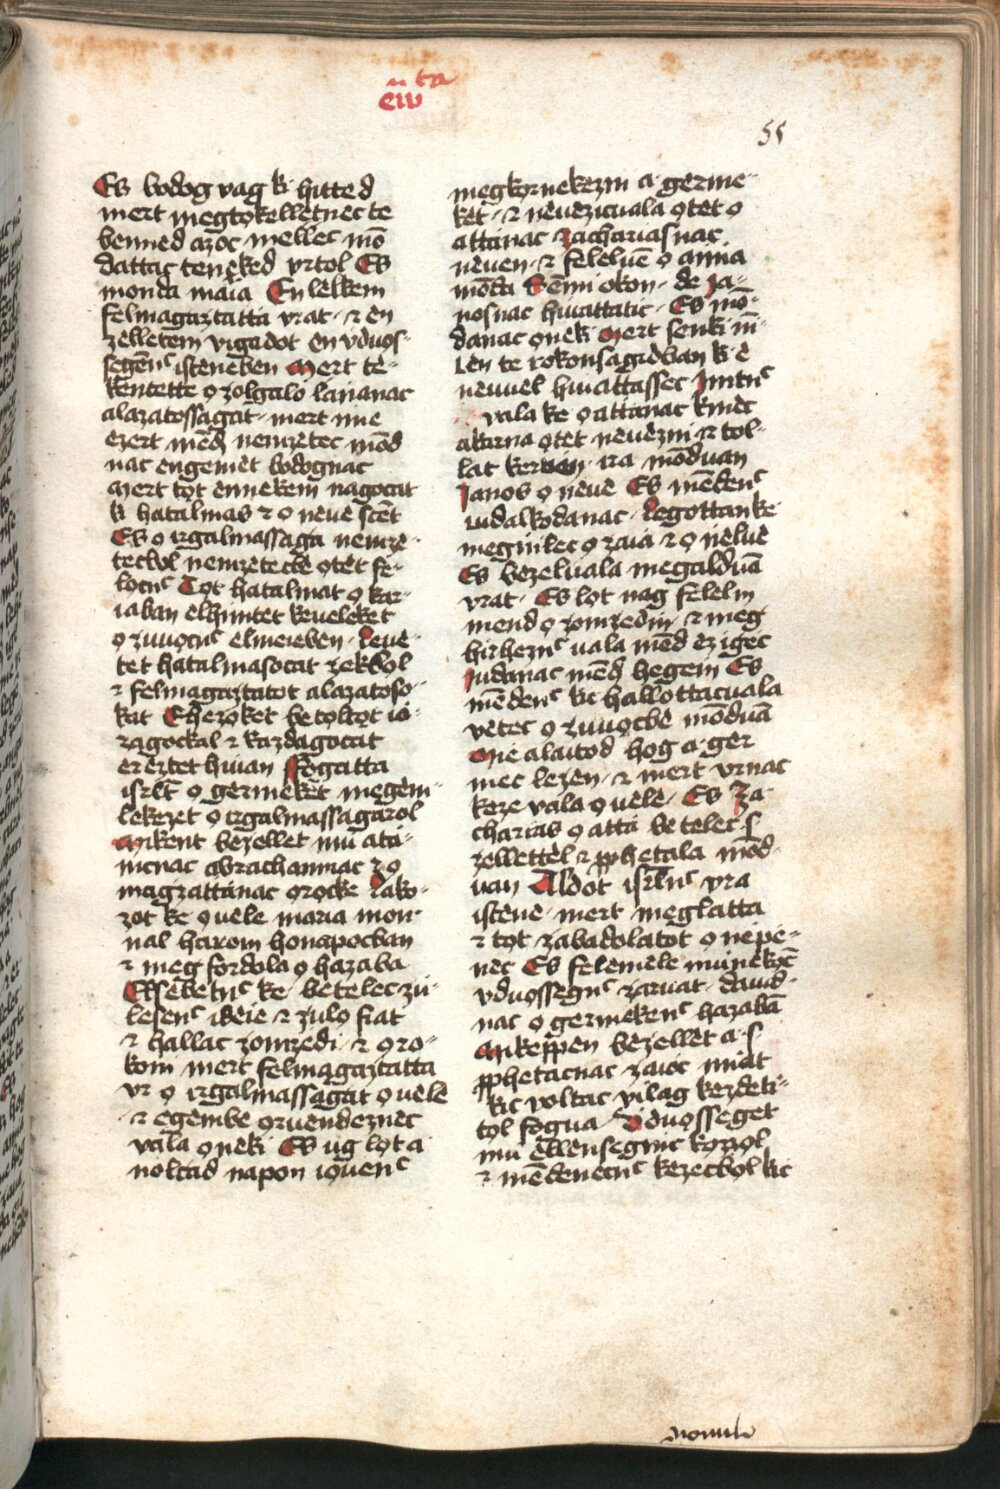 eɯ̄ tꝛa
55
Es bodog vag ki hitted
mert megtǫkelletnec te
benned azoc mellec mō
dattac teneked vrtol Es
monda maia En lelkem
felmagaztatta vrat · ꞇ en
zelletem vigadot en vduos-
segenᶜ isteneben Mert te-
kentette o zolgalo lananac
alazatossagat · mert ime
ezert mēd nemzetec mōd
nac engemet bodognac
Mert tot ennekem nagocat
ki hatalmas ꞇ o neue scēt
Es o irgalmassaga nemze-
tecbol nemzetecbe otet fe-
locnᶜ Tot hatalmat o kar-
iaban elhintet keueleket
o zuuocnᶜ elmeieben · Leue-
tet hatalmasocat zekbol
ꞇ felmagaztatot alazatoso-
kat Ehezoket betoltot io-
zagockal ꞇ kazdagocat
ereztet hiuan Fogatta
isrlt o germeket megem-
lekezet o irgalmassagarol
Mikent bezellet mu ata-
incnac abrachamnac ꞇ o
magzattanac orocke Lako-
zot ke ouele maria mon-
nal harom honapocban
ꞇ meg fordola o hazaba
Elsebetnᶜ ke · betelec zu-
lesenᶜ ideie ꞇ zulo fiat
ꞇ hallac zomzedi · ꞇ oro-
kom mert felmagaztatta
vr o irgalmassagat ouele
ꞇ egembe oruendeznec
vala oneki Es ug lot a
nolcad napon iouenᶜ
megkornekezni a · germe-
ket · ꞇ neuezicuala otet o
attanac zachariasnac
neuen · ꞇ felelue o anna
mōda Semi okon · de Ja-
nosnac hiuattatic · Es mō-
danac oneki Mert senki nī-
len te rokonsagidban ki e
neuuel hiuattassec Intnᶜ
vala ke o attanac kinec
akarna otet neuezni ꞇ tol-
lat keruen · ira mōduan
Janos o neue Es mēdenᶜ
iudalkodanac · Legottan ke
megnilec o zaia ꞇ o nelue
Es bezeluala megalduā
vrat · Es lot nag felelm
mend o zomzedin · ꞇ meg
hirheznᶜ vala mēd ez igec
Judanac mēd hegein Es
mēdenᶜ kic hallottacuala
vetec o zuuocbe mōduā
Mie alaitod hog a · ger
mec lezen · ꞇ mert vrnac
keze vala ouele · Es Za-
charias o atta betelec · s
zellettel ꞇ pphetala mōd-
uan Aldot isrlnᶜ vra
istene · mert meglatta
ꞇ tot zabadolatot o nepe-
nec Es felemele munekōc
vduossegnᶜ zaruat · dauid-
nac o germekenᶜ hazabā
Mikeppen bezellet a · s
pphetacnac zaioc miat
kic voltac vilag kezdeti-
tol fogua Vduosseget
mu ellensegīnc kozzol
ꞇ mēdenecnᶜ kezecbol kic